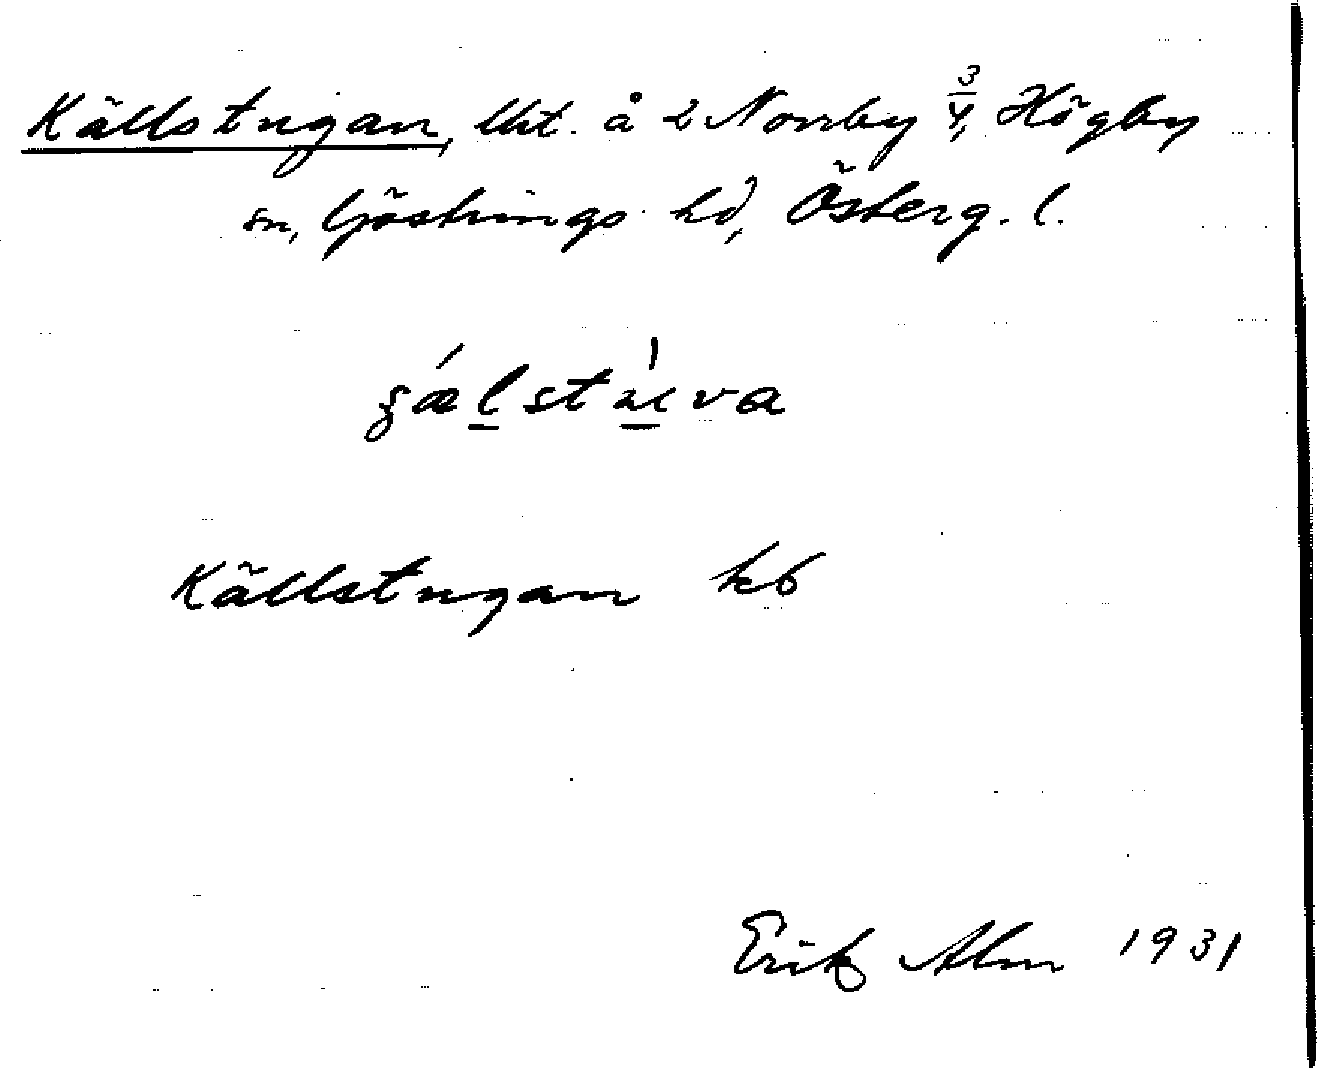 Källstugan, lht. å 2 Norrby 3/4, Högby
sn, Göstrings hd, Österg. l.
Källstugan kb
Erik Alm 1931